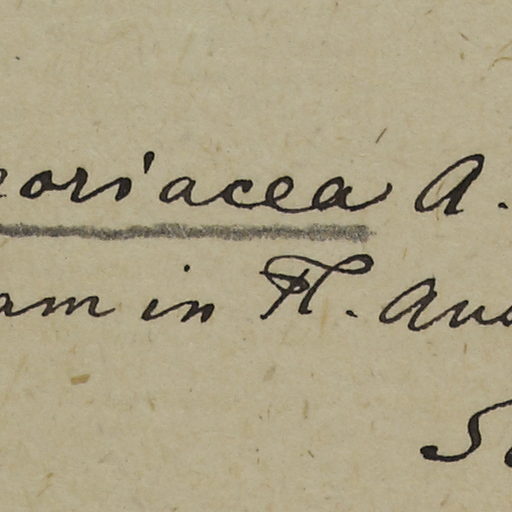 coriacea A.
am in Fl. Aus
S